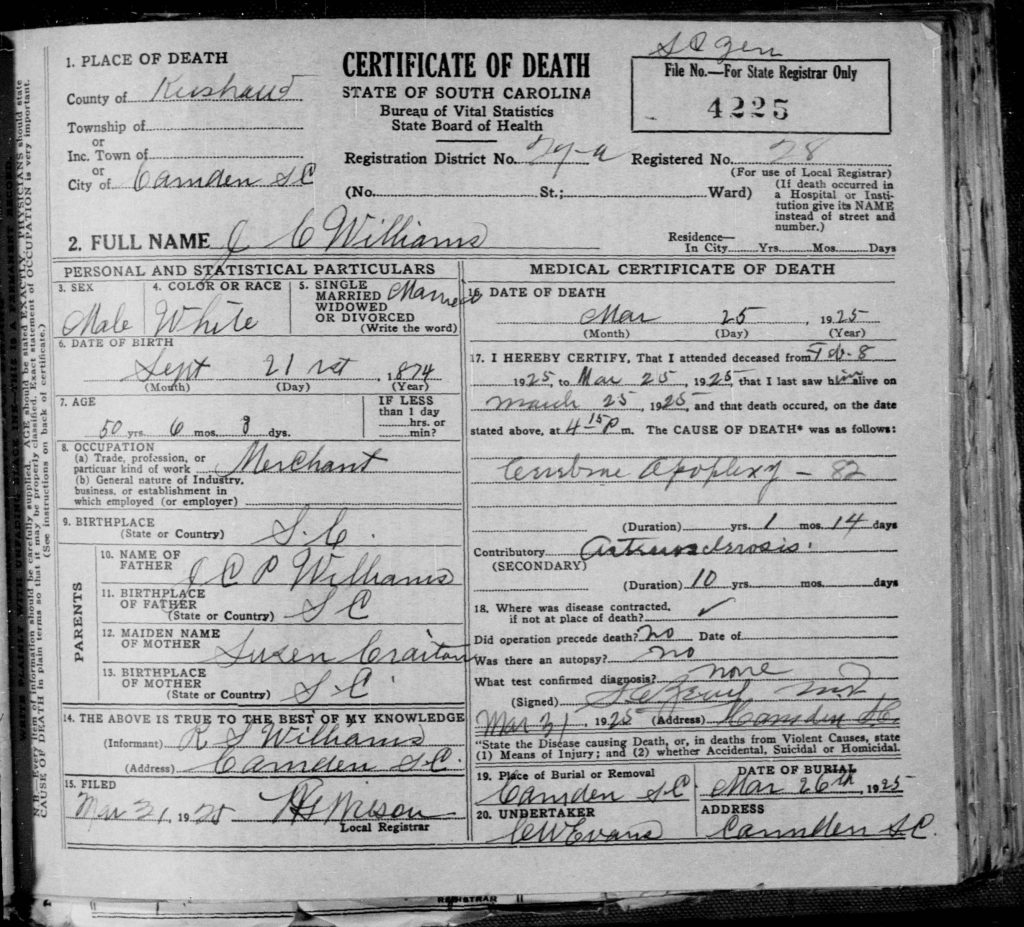 WRITE PLAINLY WITH UNFADING BLACK INK—THIS IS A PERMANENT RECORD.
N. B.—Every item of information should be carefully supplied. AGE should be stated EXACTLY. PHYSICIANS should state
CAUSE OF DEATH in plain terms so that it may be properly classified. Exact statement of OCCUPATION is very important.
(See instructions on back of certificate.)
1. PLACE OF DEATH
County of Kershaw
Township of
or
Inc. Town of
or
City of Camden S C
CERTIFICATE OF DEATH
STATE OF SOUTH CAROLINA
Bureau of Vital Statistics
State Board of Health
File No.—For State Registrar Only
4225
Registration District No. 27-a Registered No. 28
(For use of Local Registrar)
(No. St.; Ward)
(If death occurred in
a Hospital or Insti-
tution give its NAME
instead of street and
number.)
2. FULL NAME J C Williams
Residence—
In City Yrs. Mos. Days
PERSONAL AND STATISTICAL PARTICULARS
3. SEX
Male
4. COLOR OR RACE
White
5. SINGLE
MARRIED
WIDOWED
OR DIVORCED
(Write the word)
Married
6. DATE OF BIRTH
Sept 21st, 1874
(Month) (Day) (Year)
7. AGE
50 yrs. 6 mos. 3 dys.
IF LESS
than 1 day
hrs. or
min?
8. OCCUPATION
(a) Trade, profession, or
particuar kind of work Merchant
(b) General nature of Industry,
business, or establishment in
which employed (or employer)
9. BIRTHPLACE
(State or Country) S. C.
PARENTS
10. NAME OF
FATHER J C P Williams
11. BIRTHPLACE
OF FATHER
(State or Country) S C
12. MAIDEN NAME
OF MOTHER Susen
13. BIRTHPLACE
OF MOTHER
(State or Country) S-C
14. THE ABOVE IS TRUE TO THE BEST OF MY KNOWLEDGE
(Informant) R S Williams
(Address) Camden S. C.
15. FILED
Mar 31, 1925
Local Registrar
MEDICAL CERTIFICATE OF DEATH
16. DATE OF DEATH
Mar 25, 1925
(Month) (Day) (Year)
17. I HEREBY CERTIFY, That I attended deceased from Feb-8
1925, to Mar 25, 1925, that I last saw him alive on
March 25, 1925, and that death occured, on the date
stated above, at 4 15 P m. The CAUSE OF DEATH* was as follows:
Apoplexy – 82
(Duration) yrs. 1 mos. 14 days
Contributory Arteriosclerosis.
(SECONDARY)
(Duration) 10 yrs. mos. days
18. Where was disease contracted,
if not at place of death? ✓
Did operation precede death? no Date of
Was there an autopsy? no
What test confirmed diagnosis? none
(Signed) M.D.
Mar 31 1925 (Address) Camden S.C.
*State the Disease causing Death, or, in deaths from Violent Causes, state
(1) Means of Injury; and (2) whether Accidental, Suicidal or Homicidal.
19. Place of Burial or Removal
Camden S.C.
DATE OF BURIAL
Mar 26th, 1925
20. UNDERTAKER
C W Evans
ADDRESS
Camden S.C.
REGISTRAR